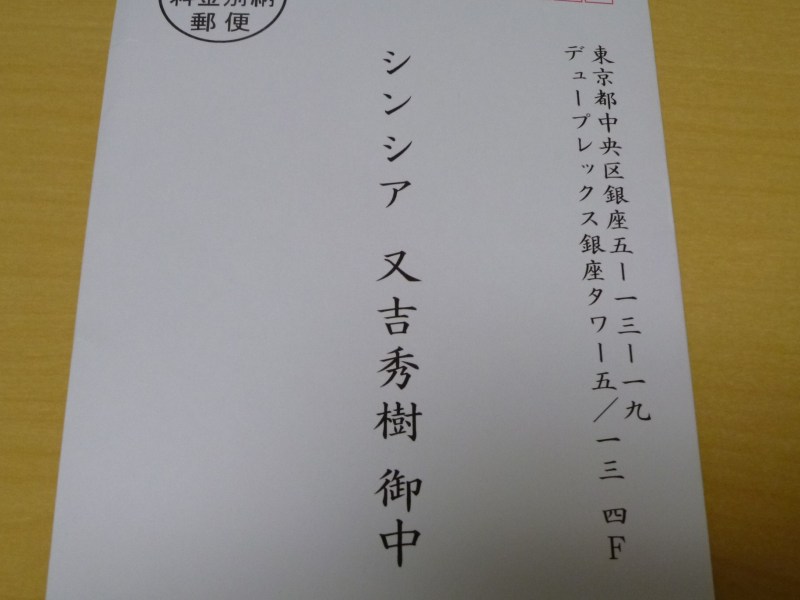 東京都中央区銀座五ー一三ー一九
デュープレックス銀座タワー五/一三 四F
シンシア 又吉秀樹 御中
料金別納
郵便